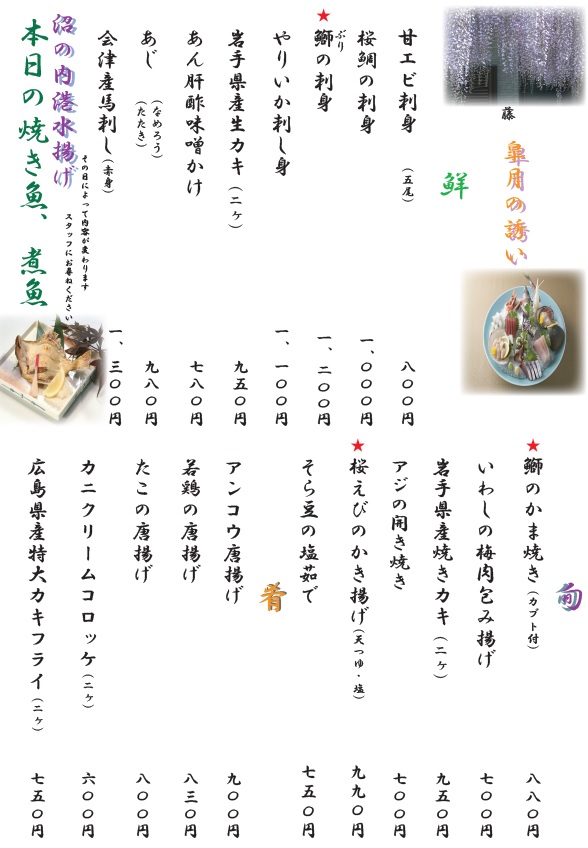 藤
皐月の誘い
鮮
甘エビ刺身(五尾) 八〇〇円
桜鯛の刺身 一、〇〇〇円
★鰤の刺身 一、二〇〇円
ぶり
やりいか刺し身 一、一〇〇円
岩手県産生カキ(二ヶ) 九五〇円
あん肝酢味噌かけ 七八〇円
あじ(なめろう)(たたき) 九八〇円
会津産馬刺し(赤身) 一、三〇〇円
沼の内港水揚げ
本日の焼き魚、煮魚
その日によって内容が変わります
スタッフにお尋ねください
旬
★鰤のかま焼き(カブト付) 八八〇円
いわしの梅肉包み揚げ 七〇〇円
岩手県産焼きカキ(二ヶ) 九五〇円
アジの開き焼き 七〇〇円
★桜えびのかき揚げ(天つゆ・塩) 九九〇円
そら豆の塩茹で 七五〇円
肴
アンコウ唐揚げ 九〇〇円
若鶏の唐揚げ 八三〇円
たこの唐揚げ 八〇〇円
カニクリームコロッケ(二ヶ) 六〇〇円
広島県産特大カキフライ(二ヶ) 七五〇円